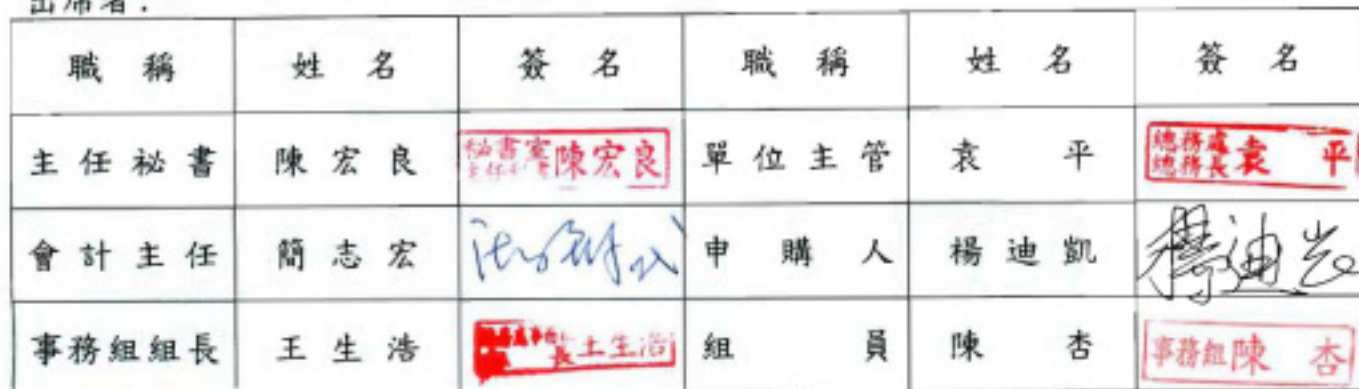 出席者：
職稱 姓名 簽名 職稱 姓名 簽名
主任祕書 陳宏良 秘書室 主任秘書 陳宏良 單位主管 袁平 總務處 總務長 袁平
會計主任 簡志宏 申購人 楊迪凱 楊迪
事務組組長 王生浩 長王生浩 組員 陳杏 事務組陳杏